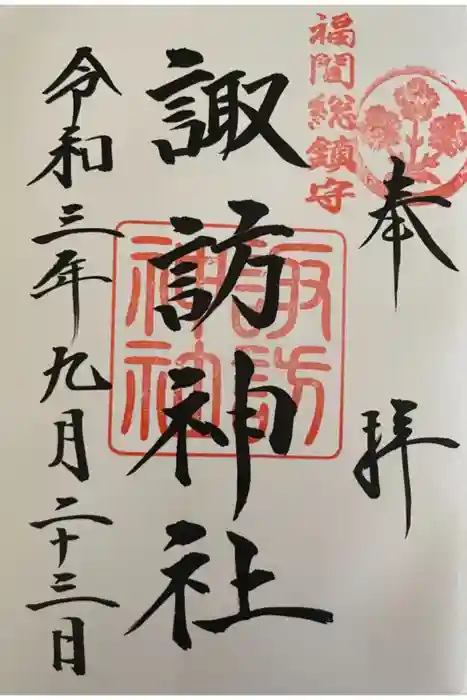 奉拝
福間総鎮守
諏訪神社
諏訪
神社
令和三年九月二十三日